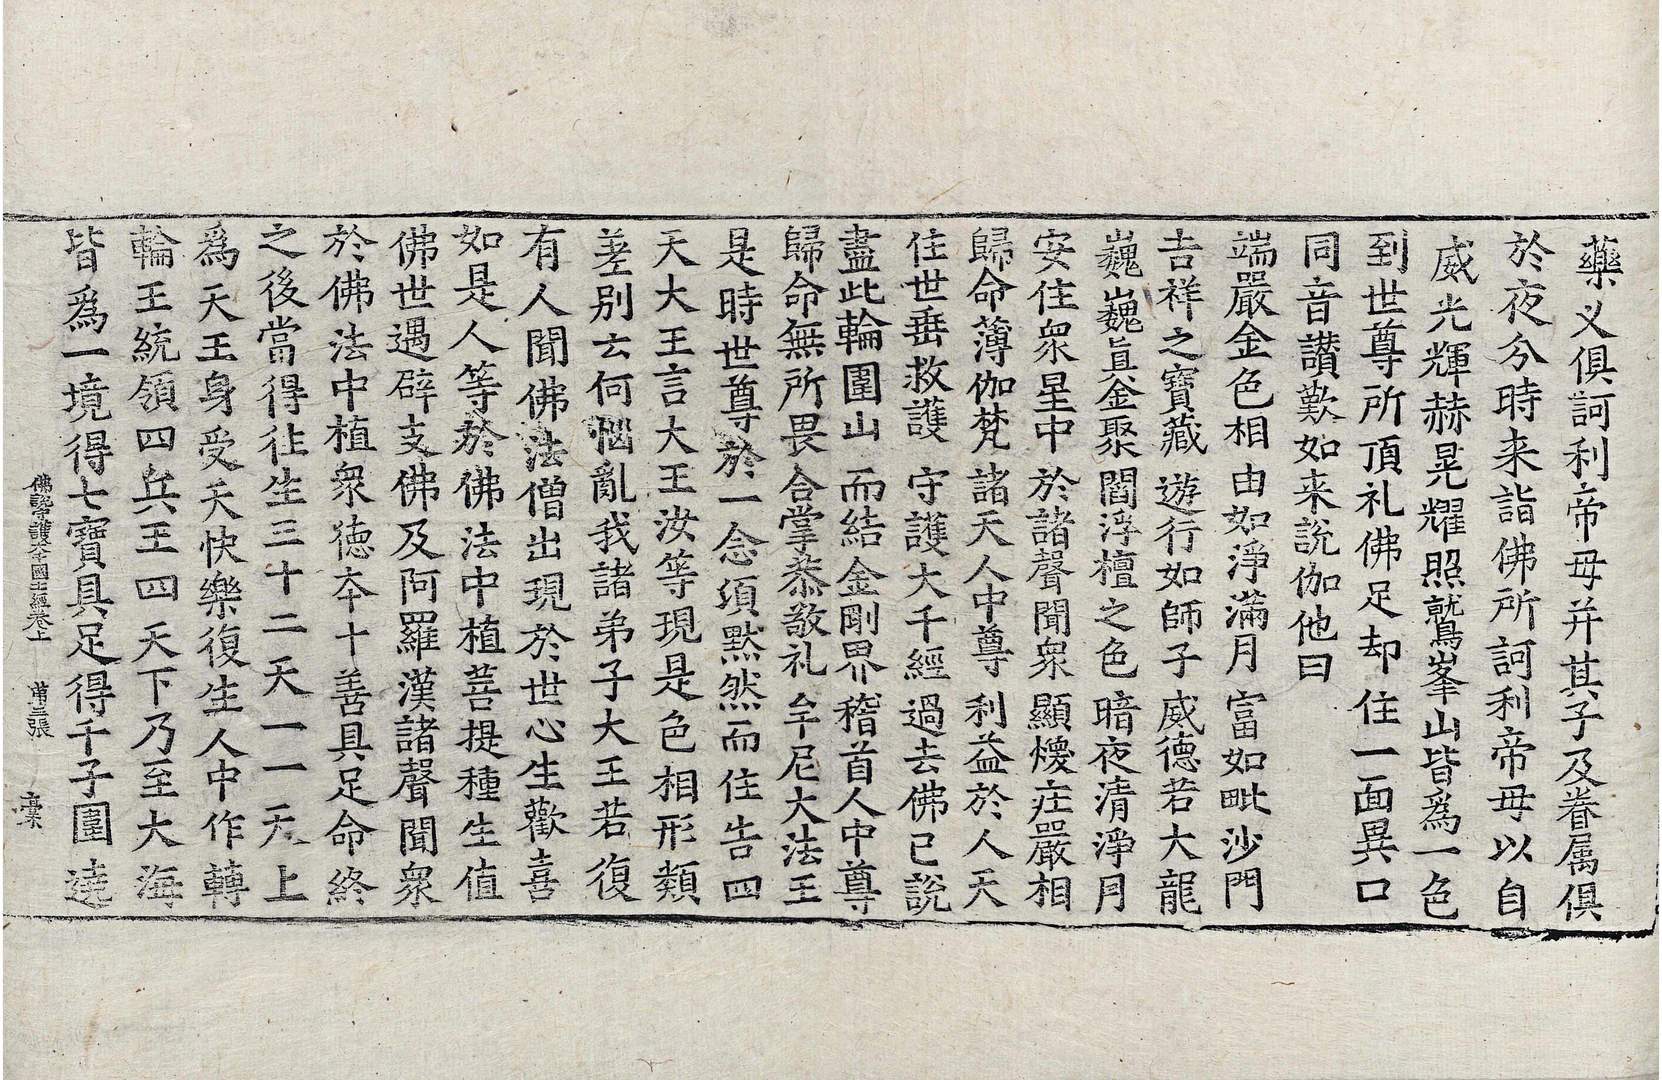 藥叉俱訶利帝母并其子及眷属俱
於夜分時来詣佛所訶利帝母以自
威光輝赫晃耀照鷲峯山皆為一色
到世尊所頂礼佛足却住一面異口
同音讃歎如来說伽他曰
端嚴金色相 由如淨滿月 富如毗沙門
吉祥之寶藏 遊行如師子 威德若大龍
巍巍真金聚 閻浮檀之色 暗夜清淨月
安住衆星中 於諸聲聞衆 顯煖庄嚴相
歸命薄伽梵 諸天人中尊 利益於人天
住世垂救護 守護大千經 過去佛已說
盡此輪圍山 而結金剛界 稽首人中尊
歸命無所畏 合掌恭敬礼 牟尼大法王
是時世尊於一念須默然而住告四
天大王言大王汝等現是色相形類
差别云何惱亂我諸弟子大王若復
有人聞佛法僧出現於世心生歡喜
如是人等於佛法中植菩提種生值
佛世遇辟支佛及阿羅漢諸聲聞衆
於佛法中植衆德夲十善具足命終
之後當得往生三十二天一一天上
為天王身受天快樂復生人中作轉
輪王統領四兵王四天下乃至大海
皆為一境得七寶具足得千子圍遶
佛說守護大千國土經卷上 第三張 槖